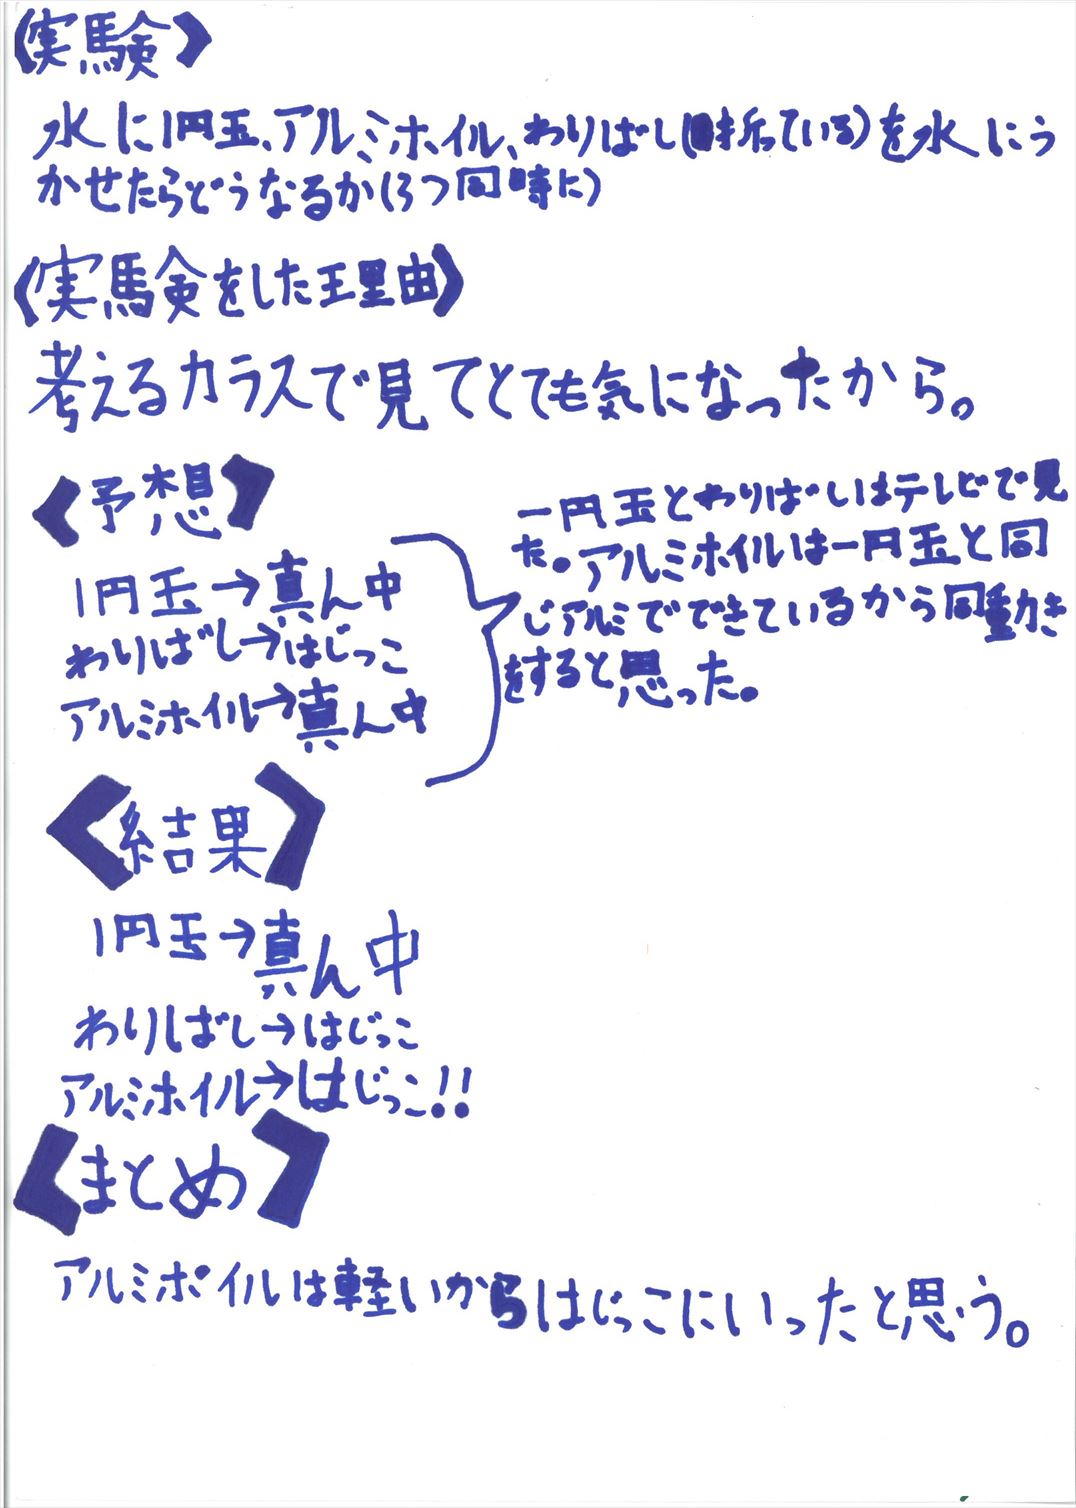 《実験》
水に1円玉、アルミホイル、わりばし(折っている)を水にう
かせたらどうなるか(3つ同時に)
《実験をした理由》
考えるカラスで見てとても気になったから。
《予想》
1円玉→真ん中
わりばし→はじっこ
アルミホイル→真ん中
一円玉とわりばしはテレビで見
た。アルミホイルは一円玉と同
じアルミでできているから同動き
をすると思った。
《結果》
1円玉→真ん中
わりばし→はじっこ
アルミホイル→はじっこ!!
《まとめ》
アルミホイルは軽いからはじっこにいったと思う。